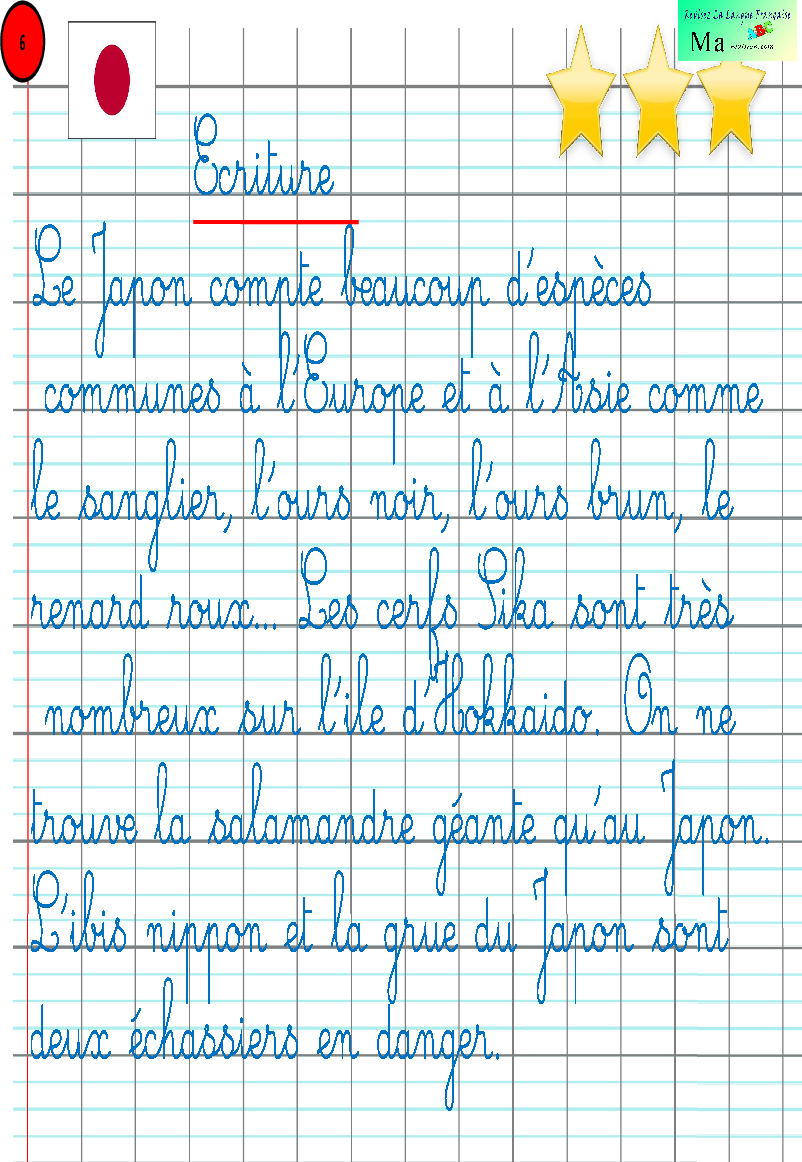 6
Revisez La Langue Française
ABC
Ma
Ecriture
Le Japon compte beaucoup d'espèces
communes à l'Europe et à l'Asie comme
le sanglier, l'ours noir, l'ours brun, le
renard roux... Les cerfs Sika sont très
nombreux sur l'ile d'Hokkaido. On ne
trouve la salamandre géante qu'au Japon.
L'ibis nippon et la grue du Japon sont
deux échassiers en danger.